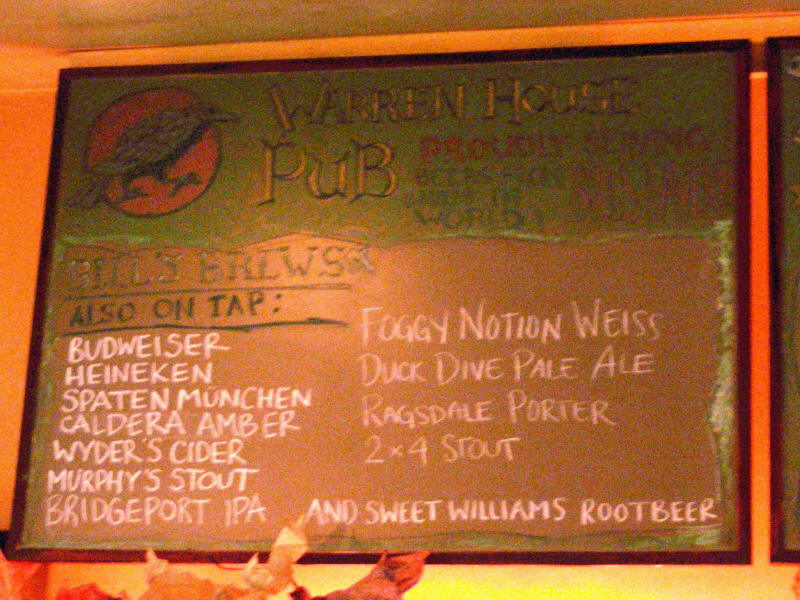 WARREN HOUSE
PUB
PROUDLY SERVING
WORLD!
BILL'S BREWS &
ALSO ON TAP:
BUDWEISER
HEINEKEN
SPATEN MÜNCHEN
CALDERA AMBER
WYDER'S CIDER
MURPHY'S STOUT
BRIDGEPORT IPA
FOGGY NOTION WEISS
DUCK DIVE PALE ALE
RAGSDALE PORTER
2x4 STOUT
AND SWEET WILLIAMS ROOTBEER